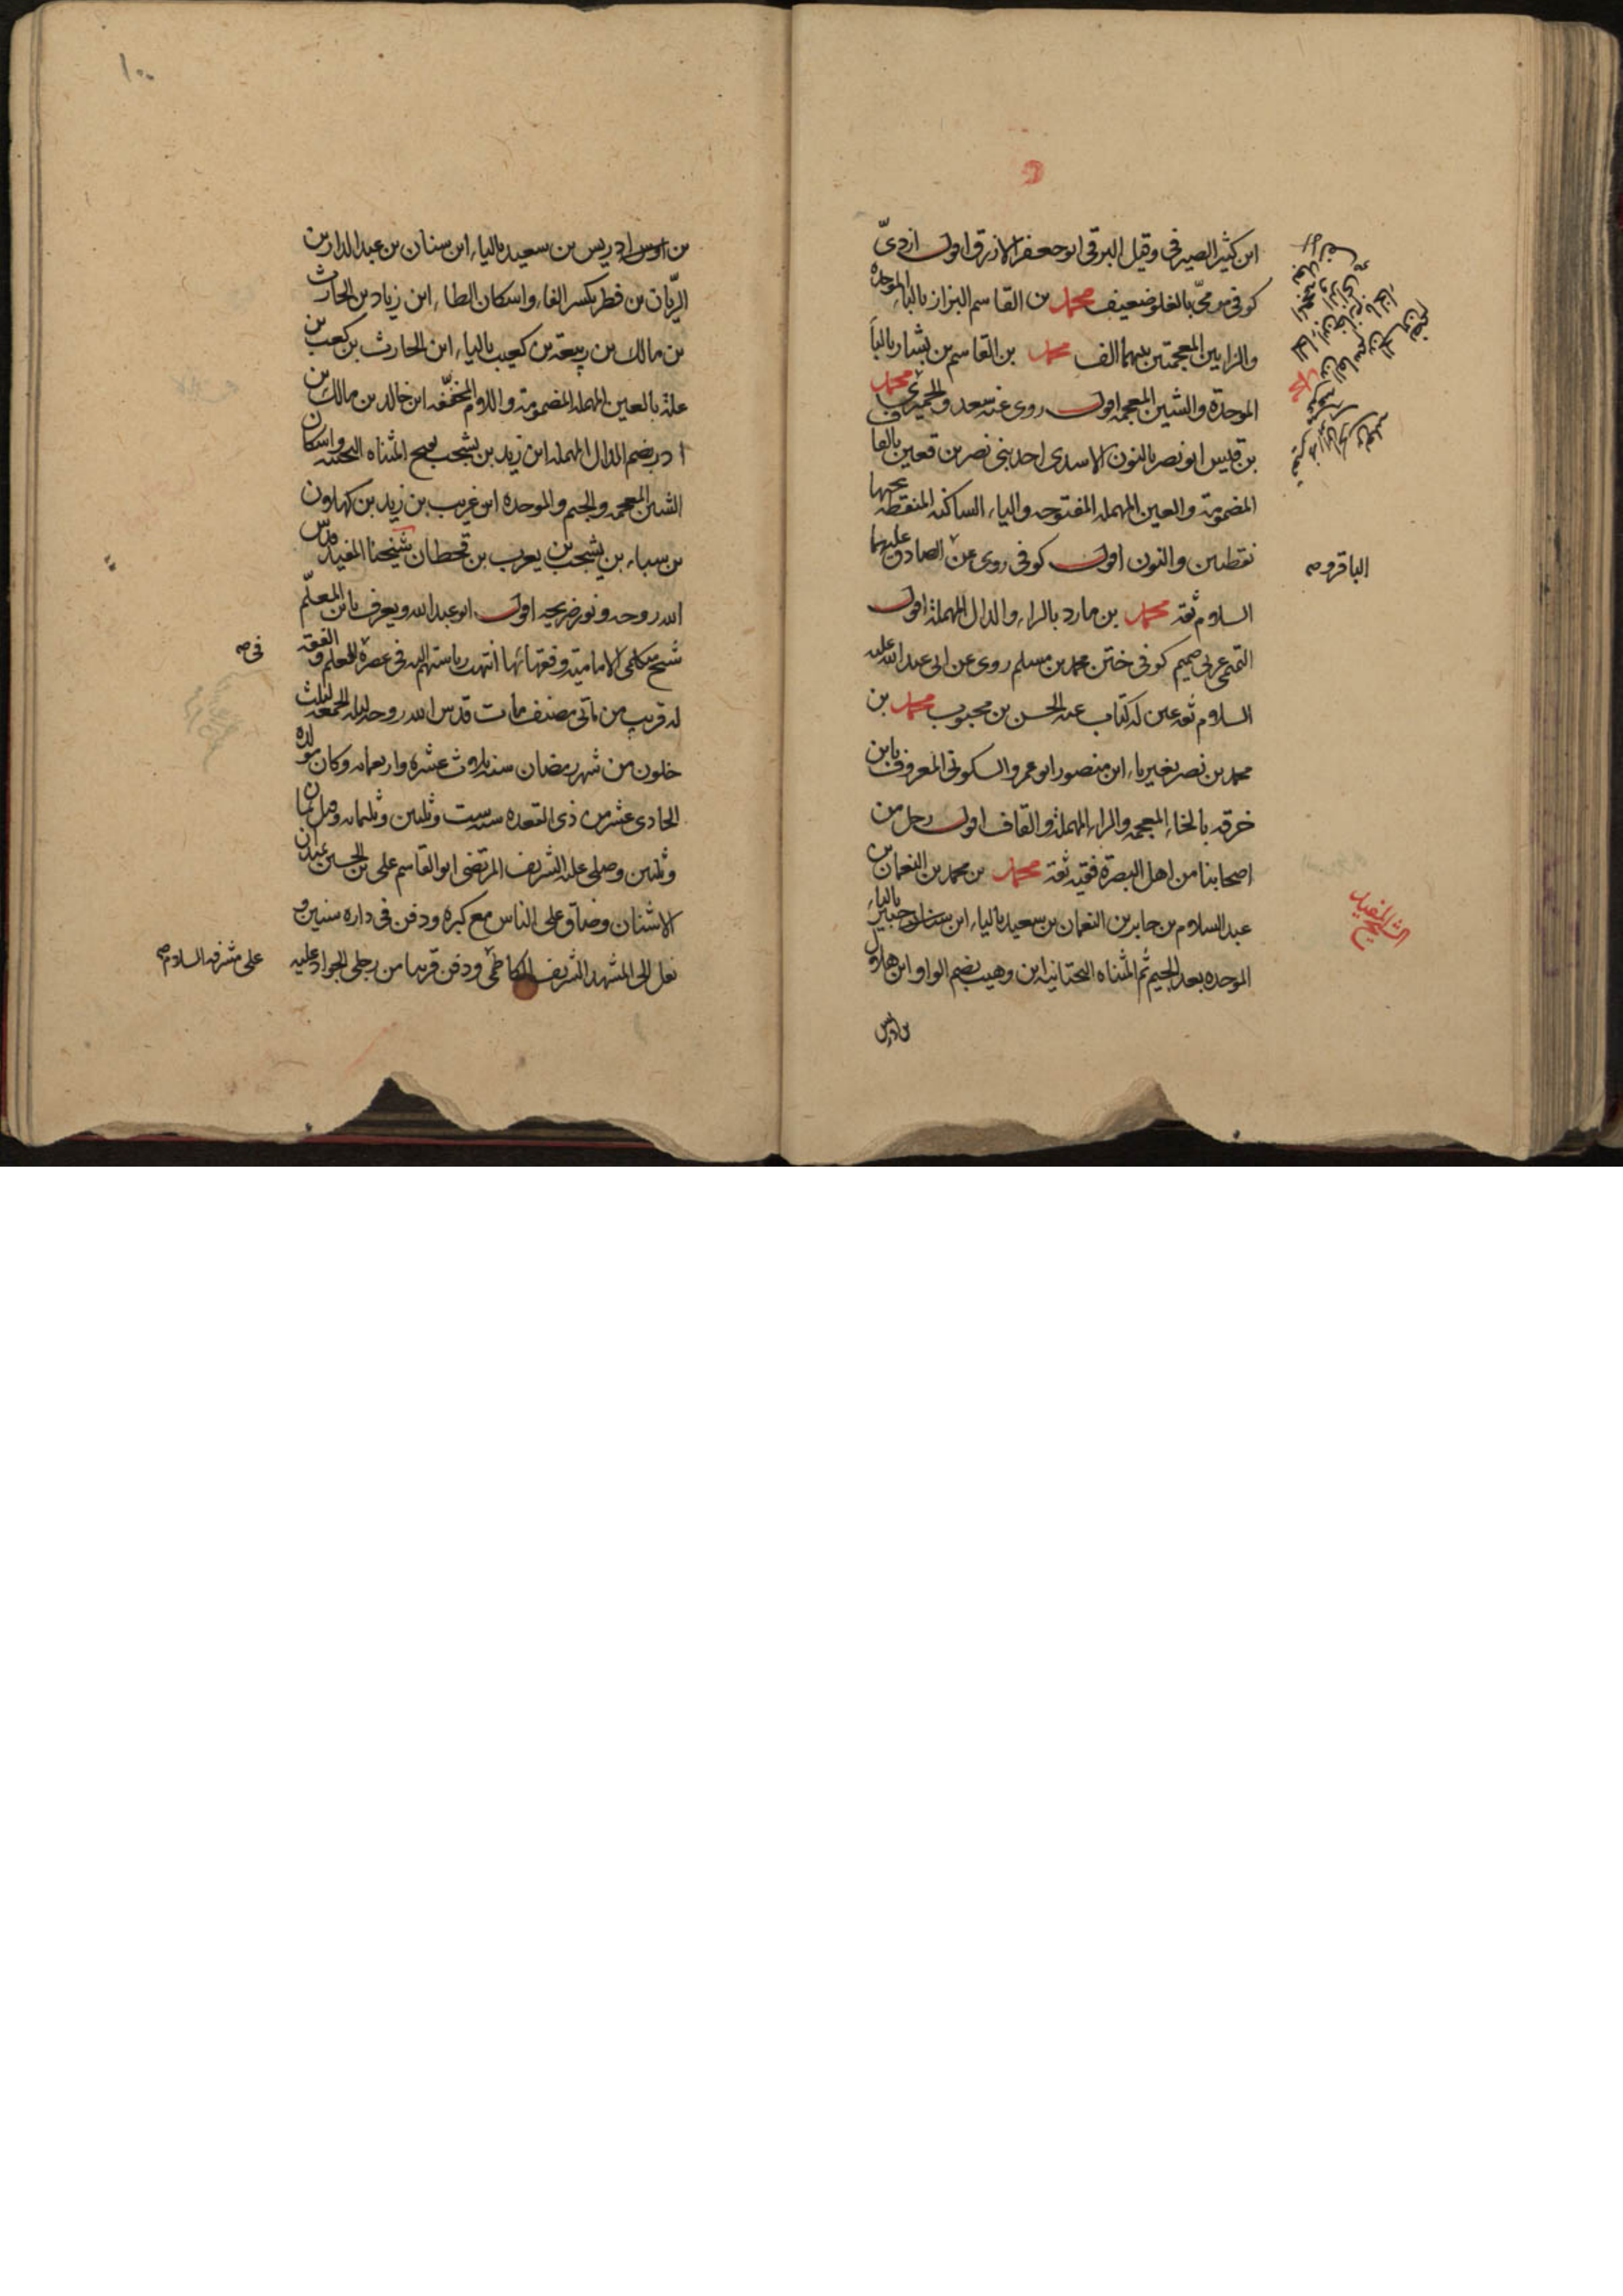 ابن كثير الصيرفي وقيل البرقي ابو جعفر الازرق اقول ازديّ
كوفي مرميّ بالغلو ضعيف محمد بن القاسم البزاز بالباء الموحدة
والزايين المعجمتين بينهما الف محمد بن القاسم بن بشار بالباء
الموحدة والشين المعجمه اقول روى عنه سعد والحميري محمد
بن قيس ابو نصر بالنون الاسدى احد بنى نصر بن قعين بالقاف
المضمومة والعين المهمله المفتوحه والياء الساكنه المنقطه تحتها
نقطتين والنون اقول كوفى روى عن الصادق عليهما
الباقر و صح
السلام ثقه محمد بن مارد بالراء والدال المهملة اقول
التميمى عربى صميم كوفى ختن محمد بن مسلم روى عن ابى عبد الله عليه
السلام ثقه عين له كتاب عنه الحسن بن محبوب محمد بن
محمد بن نصر بغير ياء ابن منصور ابو عمرو السكونى المعروف بابن
خرقه بالخاء المعجمه والراء المهملة والقاف اقول رجل من
اصحابنا من اهل البصرة فقيه ثقه محمد بن محمد بن النعمان بن
عبد السلام بن جابر بن النعمان بن سعيد بالياء ابن جبير بالياء
الشيخ المفيد
الموحده بعد الجيم ثم المثناه التحتانيه ابن وهيب بضم الواو ابن هلال
بن اوس
بن اوس ادريس بن سعيد بالياء ابن سنان بن عبد الدار بن
الريّان بن فطر بكسر الفاء واسكان الطاء ابن زياد بن الحارث
بن مالك بن ربيعة بن كعيب بالياء ابن الحارث بن كعب بن
علة بالعين المهملة المضمومة واللام المخففّه ابن خالد بن مالك بن
ادد بضم الدال المهمله ابن زيد بن يشجب بفتح المثناه التحتيه واسكان
الشين المعجمه والجيم والموحده ابن عريب بن زيد بن كهلان
بن سباء بن يشجب بن يعرب بن قحطان شيخنا المفيد قدس
الله روحه ونور ضريحه اقول ابو عبد الله ويعرف بابن المعلّم
شيخ متكلمى الامامية وفقهائها انتهت رياستهم اليه فى عصره العلم والفقه
فى صح
له قريب من مأتى مصنف مات قدس الله روحه ليله الجمعه لثلث
خلون من شهر رمضان سنه ثلاث عشره واربعمائه وكان مولده
الحادى عشر من ذى القعده سنه ست وثلثين وثلثمائه وقيل ثمان
وثلثين وصلى عليه الشريف المرتضى ابو القاسم على بن الحسين بميدان
الاشنان وضاق على الناس مع كبره ودفن فى داره سنين و
نقل الى المشهد الشريف الكاظمى ودفن قريبا من رجلى الجواد عليه
على مشرفه السلام صح
١٠٠